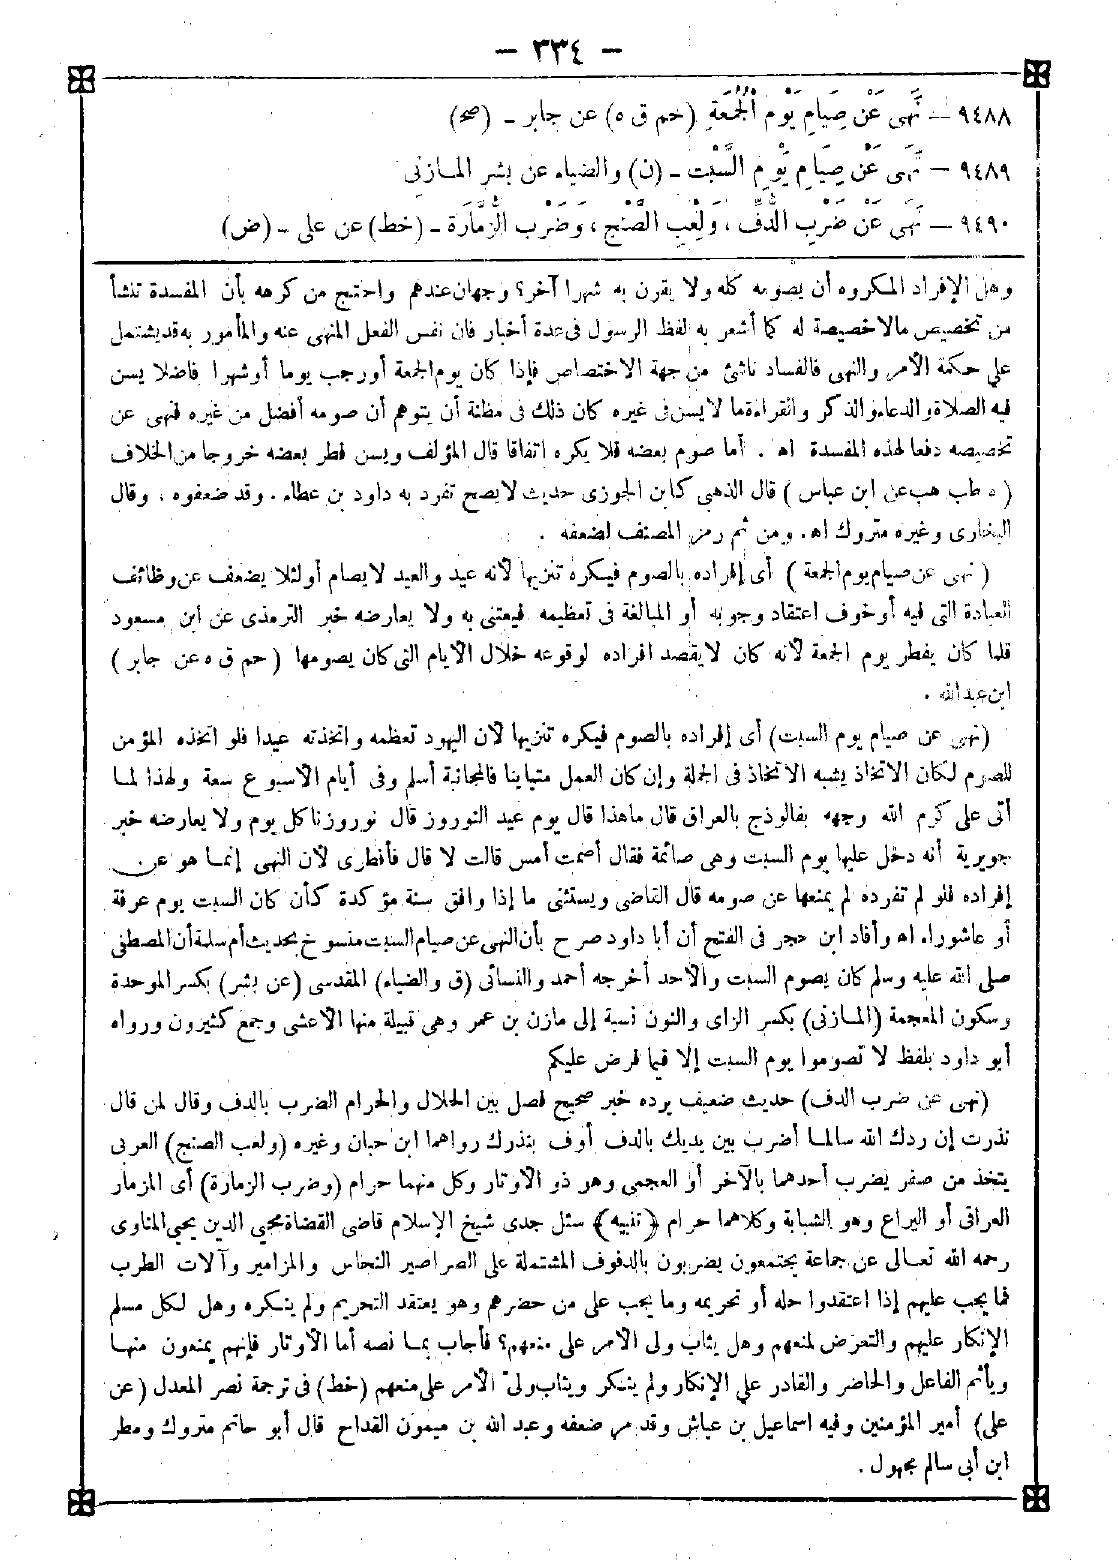 — ٣٣٤ —
٩٤٨٨ — نَهَى عَنْ صِيَامِ يَوْمِ الْجُمُعَةِ (حم ق ه) عن جابر - (صح)
٩٤٨٩ — نَهَى عَنْ صِيَامِ يَوْمِ السَّبْتِ - (ن) والضياء عن بشر المازنى
٩٤٩٠ — نَهَى عَنْ ضَرْبِ الدُّفِّ ، وَلَعِبِ الصَّنْجِ ، وَضَرْبِ الزَّمَّارَةِ - (خط) عن على - (ض)
وهل الإفراد المكروه أن يصومه كله ولا يقرن به شهرا آخر؟ وجهان عندهم واحتج من كرهه بأن المفسدة تنشأ
من تخصيص مالاخصيصة له كما أشعر به لفظ الرسول فى عدة أخبار فان نفس الفعل المنهى عنه والمأمور به قد يشتمل
على حكمة الأمر والنهى فالفساد ناشئ من جهة الاختصاص فإذا كان يوم الجمعة أورجب يوما أو شهرا فاضلا يسن
فيه الصلاة والدعاء والذكر والقراءة ما لا يسن فى غيره كان ذلك فى مظنة أن يتوهم أن صومه أفضل من غيره فنهى عن
تخصيصه دفعا لهذه المفسدة اه . أما صوم بعضه فلا يكره اتفاقا قال المؤلف ويسن فطر بعضه خروجا من الخلاف
( ه طب هب عن ابن عباس ) قال الذهبى كابن الجوزى حديث لا يصح تفرد به داود بن عطاء . وقد ضعفوه ، وقال
البخارى وغيره متروك اه. ومن ثم رمز المصنف لضعفه .
( نهى عن صيام يوم الجمعة ) أى إفراده بالصوم فيكره تنزيها لأنه عيد والعيد لا يصام أو لئلا يضعف عن وظائف
العبادة التى فيه أو خوف اعتقاد وجوبه أو المبالغة فى تعظيمه فيعتنى به ولا يعارضه خبر الترمذى عن ابن مسعود
قلما كان يفطر يوم الجمعة لأنه كان لا يقصد افراده لوقوعه خلال الأيام التى كان يصومها ( حم ق ه عن جابر )
ابن عبدالله .
(نهى عن صيام يوم السبت) أى إفراده بالصوم فيكره تنزيها لأن اليهود تعظمه واتخذته عيدا فلو اتخذه المؤمن
للصوم لكان الاتخاذ يشبه الاتخاذ فى الجملة وإن كان العمل متباينا فالمجانبة أسلم وفى أيام الأسبوع سعة ولهذا لما
أتى على كرم الله وجهه بفالوذج بالعراق قال ماهذا قال يوم عيد النوروز قال نوروزنا كل يوم ولا يعارضه خبر
جويرية أنه دخل عليها يوم السبت وهى صائمة فقال أصمت أمس قالت لا قال فأفطرى لأن النهى إنما هو عن
إفراده فلو لم تفرده لم يمنعها عن صومه قال القاضى ويستثنى ما إذا وافق سنة مؤكدة كأن كان السبت يوم عرفة
أو عاشوراء اه وأفاد ابن حجر فى الفتح أن أبا داود صرح بأن النهى عن صيام السبت منسوخ بحديث أم سلمة أن المصطفى
صلى الله عليه وسلم كان يصوم السبت والأحد أخرجه أحمد والنسائى (ق والضياء) المقدسى (عن بشر) بكسر الموحدة
وسكون المعجمة (المازنى) بكسر الزاى والنون نسبة إلى مازن بن عمر وهى قبيلة منها الأعشى وجمع كثيرون ورواه
أبو داود بلفظ لا تصوموا يوم السبت إلا فيما فرض عليكم
(نهى عن ضرب الدف) حديث ضعيف يرده خبر صحيح فصل بين الحلال والحرام الضرب بالدف وقال لمن قال
نذرت إن ردك الله سالما أضرب بين يديك بالدف أوف بنذرك رواهما ابن حبان وغيره (ولعب الصنج) العربى
يتخذ من صفر يضرب أحدهما بالآخر أو العجمى وهر ذو الأوتار وكل منهما حرام (وضرب الزمارة) أى المزمار
العراقى أو اليراع وهو الشبابة وكلاهما حرام (تنبيه) سئل جدى شيخ الإسلام قاضى القضاة محيى الدين يحيى المناوى
رحمه الله تعالى عن جماعة يجتمعون يضربون بالدفوف المشتملة على الصراصير النحاس والمزامير وآلات الطرب
فما يجب عليهم إذا اعتقدوا حله أو تحريمه وما يجب على من حضرهم وهو يعتقد التحريم ولم ينكره وهل لكل مسلم
الإنكار عليهم والتعرض لمنعهم وهل يثاب ولى الأمر على منعهم؟ فأجاب بما نصه أما الأوتار فإنهم يمنعون منها
ويأثم الفاعل والحاضر والقادر على الإنكار ولم ينكر ويثاب ولى الأمر على منعهم (خط) فى ترجمة نصر المعدل (عن
على) أمير المؤمنين وفيه اسماعيل بن عياش وقد مر ضعفه وعبد الله بن ميمون القداح قال أبو حاتم متروك ومطر
ابن أبى سالم مجهول .